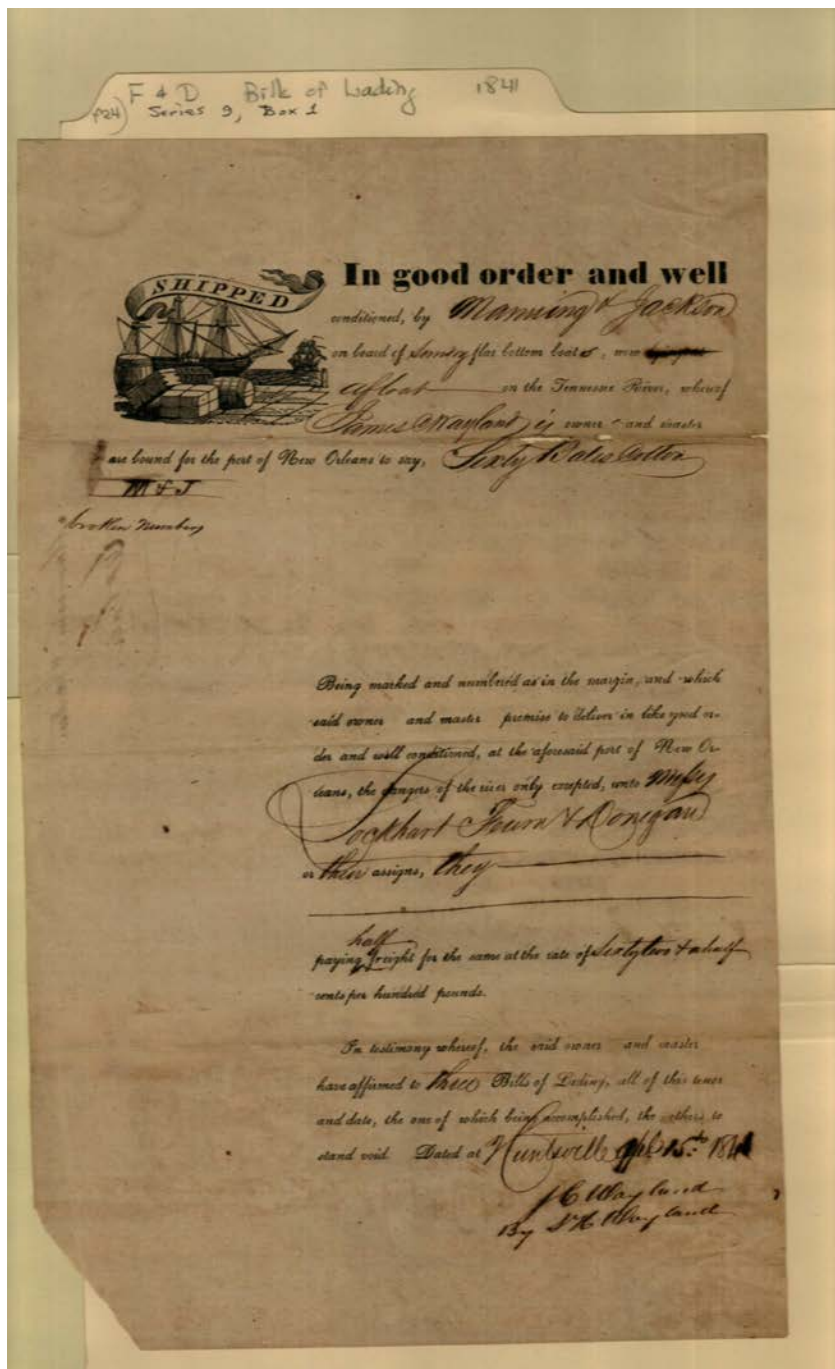 F & D Bills of Lading 1841
(F24) Series 9, Box 1
SHIPPED
In good order and well
conditioned, by Manning & Jackson
on board of flat bottom boats, now
afloat on the Tennessee River, whereof
James Wayland is owner and master
are bound for the port of New Orleans to say, Sixty Bales Cotton
M & J
broken Numbers
Being marked and numbered as in the margin, and which
said owner and master promise to deliver in like good or-
der and well conditioned, at the aforesaid port of New Or-
leans, the dangers of the river only excepted, unto Messrs
Lockhart & Donegan
or their assigns, they
half
paying freight for the same at the rate of Sixty two & a half
cents per hundred pounds.
In testimony whereof, the said owner and master
have affirmed to three Bills of Lading, all of this tenor
and date, the one of which being accomplished, the others to
stand void. Dated at Huntsville Apl 15th 1841
J C Wayland
By Wayland